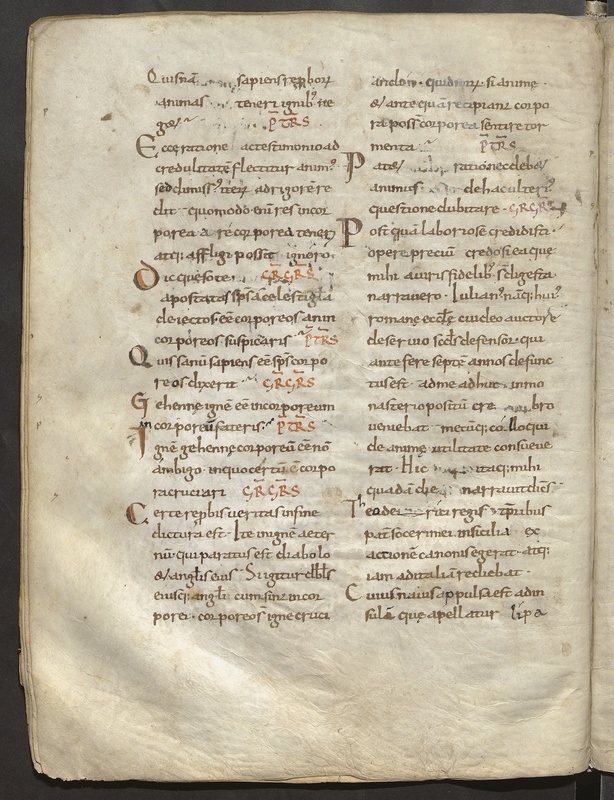 Quisnā sapiens reprborū
animas teneri ignib; ne
get PTRS
Ecce ratione ac testimonio ad
credulitatē flectitur anim;
sed dimiss; iterū ad rigorē re
dit quomodo enī res incor
porea a re corporea teneri
atq; affligi possit ignoro
Dic quęso te GRGRS
apostatas sps a celesti gła
deiectos eē corporeos an in
corporeos suspicaris PTRS
Quis sanū sapiens eē sps corpo
reos dixerit GRGRS
Gehenne ignē eē incorporeum
an corporeū fateris PTRS
Ignē gehenne corporeū eē nō
ambigo in quo certū ē corpo
ra cruciari GRGRS
Certe reprbis veritas in fine
dictura est Ite in ignē aeter
nū qui paratus est diabolo
& anglis eius Si igitur dbls
eiusq; angli cum sint incor
porei corporeo igne cruci
andi st quid mirū si anime
& ante quā recipiant corpo
ra possī corporea sentire tor
menta PTRS
Patet ratio nec debet
animus de hac ulteri;
questione dubitare GRGRS
Post quā laboriose credidisti
opere preciū credo si ea que
mihi a viris fidelib; sī digesta
narravero Iulian; nāq; hui;
romane eccłę cui deo auctore
deservio scds defensor qui
ante fere septē annos defunc
tus est ad me adhuc in mo
nasterio positū cre bro
veniebat mecūq; colloqui
de anime utilitate consueve
rat Hic itaq; mihi
quadā die narravit dicēs
Theoderici regis tpribus
pat soceri mei in sicilia ex
actionē canonis egerat atq;
iam ad italiā rediebat
Cuius navis appulsa est ad in
sulā quę apellatur lipa